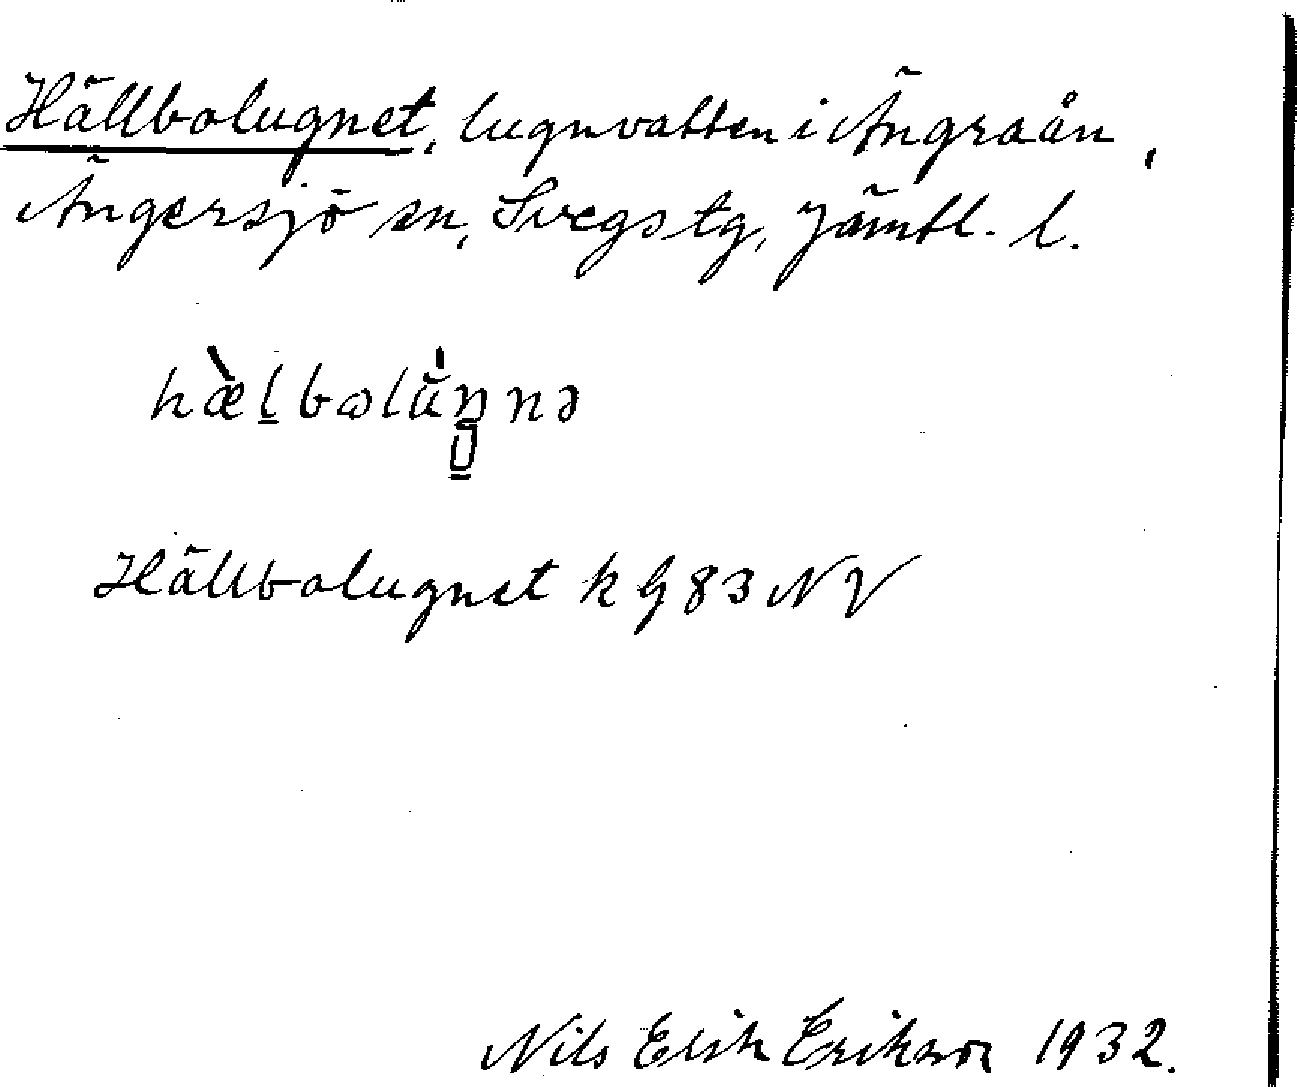 Hällbolugnet, lugnvatten i Ängraån,
Ängersjö sn, Svegs tg, Jämtl. l.
hæ̀lbəlùŋnə
Hällbolugnet k G 83 NV
Nils Erik Erikson 1932.